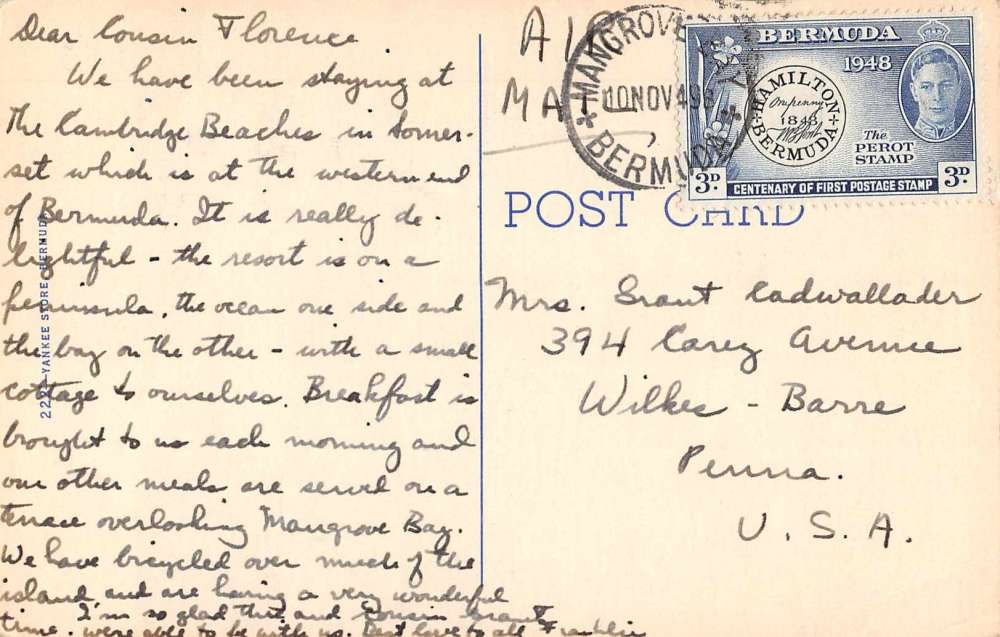 Dear Cousin Florence
We have been staying at
the Cambridge Beaches in Somer-
set which is at the western end
of Bermuda. It is really de-
lightful - the resort is on a
peninsula, the ocean one side and
the bay on the other - with a small
cottage to ourselves. Breakfast is
brought to us each morning and
our other meals are served on a
terrace overlooking Mangrove Bay.
We have bicycled over much of the
island and are having a very wonderful
time. I'm so glad that and Cousin Grant
were able to be with us. Best love to all Franklin
2222-YANKEE STORE, BERMUDA
AIR
MAIL
MANGROVE BAY
10 NOV 49
BERMUDA
BERMUDA
1948
HAMILTON
One penny
1848
BERMUDA
The
PEROT
STAMP
3D.
CENTENARY OF FIRST POSTAGE STAMP
3D.
POST CARD
Mrs. Grant Cadwallader
394 Carey Avenue
Wilkes - Barre
Penna.
U.S.A.